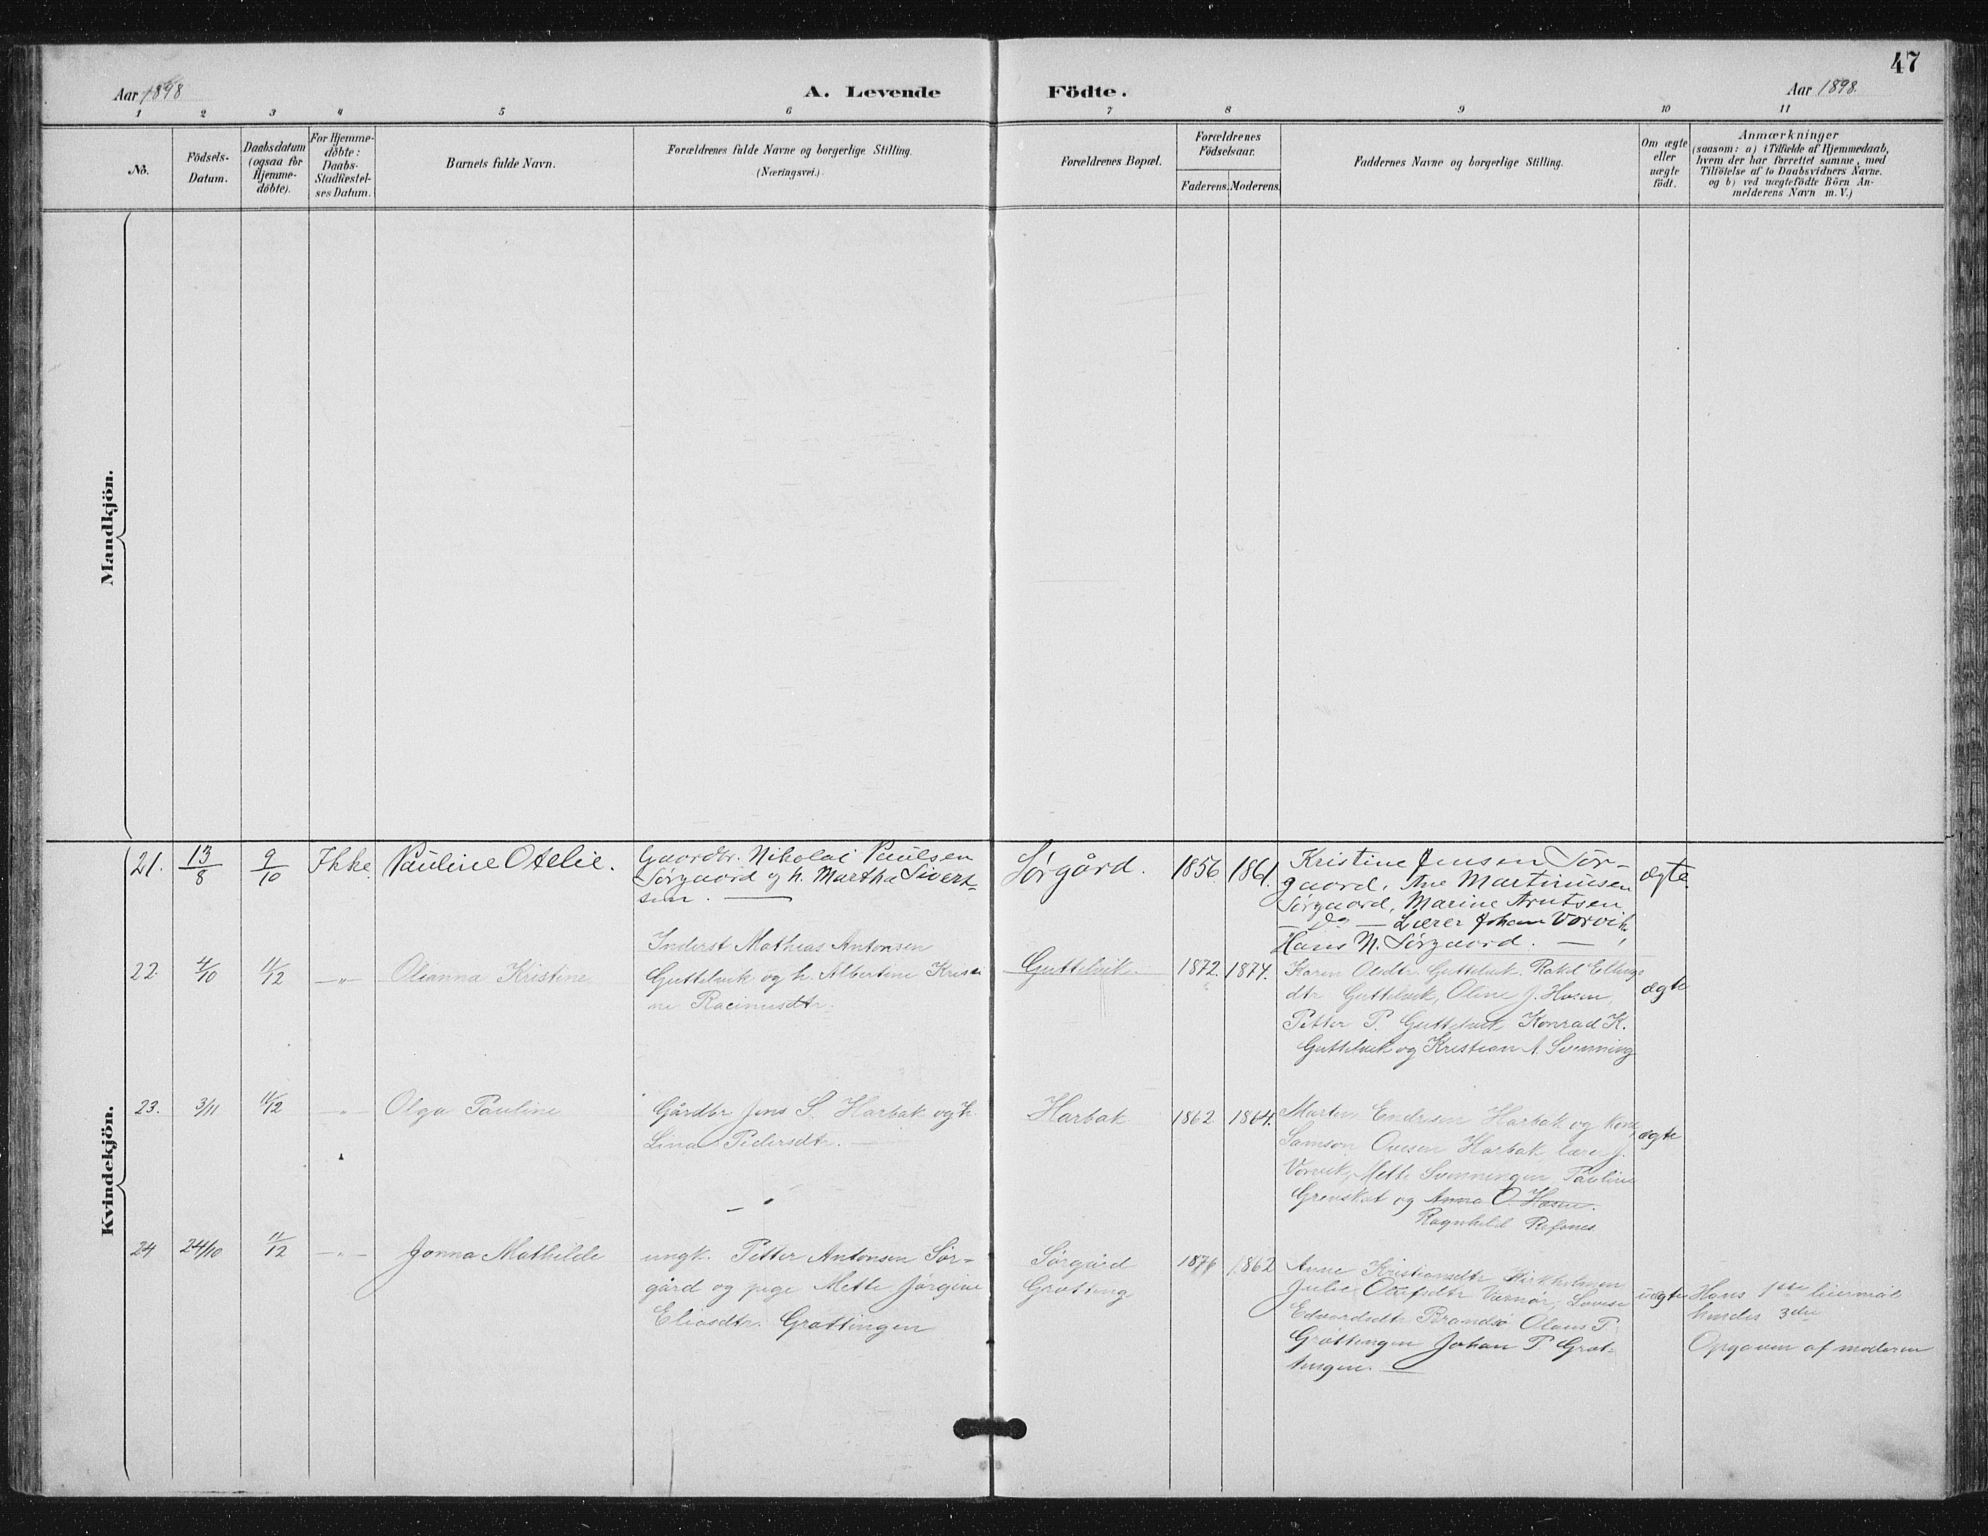 47
Aar 1898
A. Levende
Födte.
Aar 1898.
1 2 3 4 5 6 7 8 9 10 11
No.
Födsels-
Datum.
Daabsdatum
(ogsaa for
Hjemme-
döbte).
For Hjemme-
döbte:
Daabs-
Stadfæstel-
ses Datum.
Barnets fulde Navn.
Forældrenes fulde Navne og borgerlige Stilling.
(Næringsvei.)
Forældrenes Bopæl.
Forældrenes
Födselsaar.
Faderens. Moderens.
Faddernes Navne og borgerlige Stilling.
Om ægte
eller
uægte
födt.
Anmærkninger
(saasom: a) i Tilfælde af Hjemmedaab,
hvem der har forrettet samme, med
Tilföielse af to Daabsvidners Navne.
og b) ved uægtefödte Börn An-
melderens Navn m. V.)
Mandkjön.
Kvindekjön.
21. 13/8 9/10 Ikke. Pauline Otelie.
Gaardbr. Nikolai Paulsen
Sørgaard og h. Martha Sivert-
sen.
Sørgård. 1856 1861.
Kristine Jensen Sør-
gaard, Ane Martinusen
Sørgaard, Marine Arntsen
— Do — Lærer Johan Vorvik,
Hans N. Sørgaard. —
ægte.
22. 4/10 11/12 — " — Olianna Kristine
Inderst Mathias Antonsen
Guttelvik og h. Albertine Kristi
ne Racinusdtr.
Guttelvik 1872. 1874.
Karen Olsdtr Guttelvik. Rakel Ellings
dtr Guttelvik, Oline J. Hosen,
Petter P. Guttelvik Konrad K.
Guttelvik og Kristian A. Sumning
ægte
23. 3/11 11/12 — " — Olga Pauline
Gårdbr Jens S. Harbak og h.
Lina Pedersdtr. —
Harbak 1862 1864.
Martin Endresen Harbak og kone,
Samson Ovesen Harbak lærer J.
Vorvik, Mette Sumningen, Pauline
Grenskat og Anna O Hosen.
Ragnhild Refsnes
ægte
24 24/10 11/12 — " — Jonna Mathilde
ungk. Petter Antonsen Sør-
gård og pige Mette Jørgine
Eliasdtr. Grøttingen
Sørgård
Grøtting
1876 1862
Anne Kristiansdtr Kirkholmen
Julie Olufsdtr Læsnør, Lovise
Edvardsdtr Brandsø Olaus P.
Grøttingen Johan P Grøt-
tingen. —
uægte
Hans 1ste leiermål
hendes 3die
Opgaven af moderen